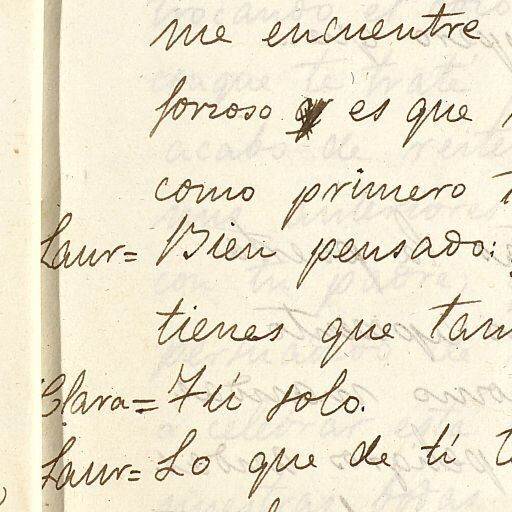 me encuentre
forzoso es que
como primero
Laur= Bien pensado:
tienes que tam
Clara= Tú solo.
Laur= Lo que de tí